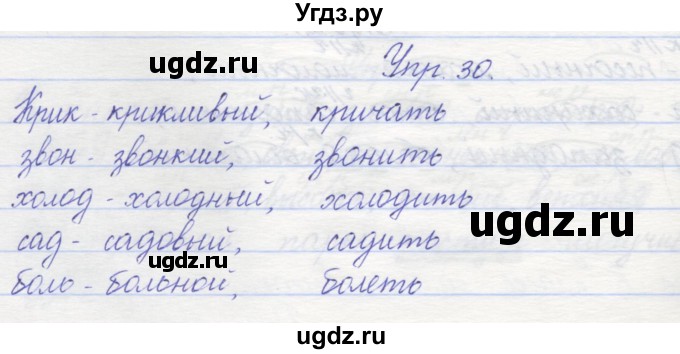 Угдз.ру
ugdz.ru
Упр. 30.
Крик - крикливый, кричать
звон - звонкий, звонить
холод - холодный, холодить
ugdz.ru
сад - садовый, садить
ugdz.ru
боль - больной, болеть
ugdz.ru